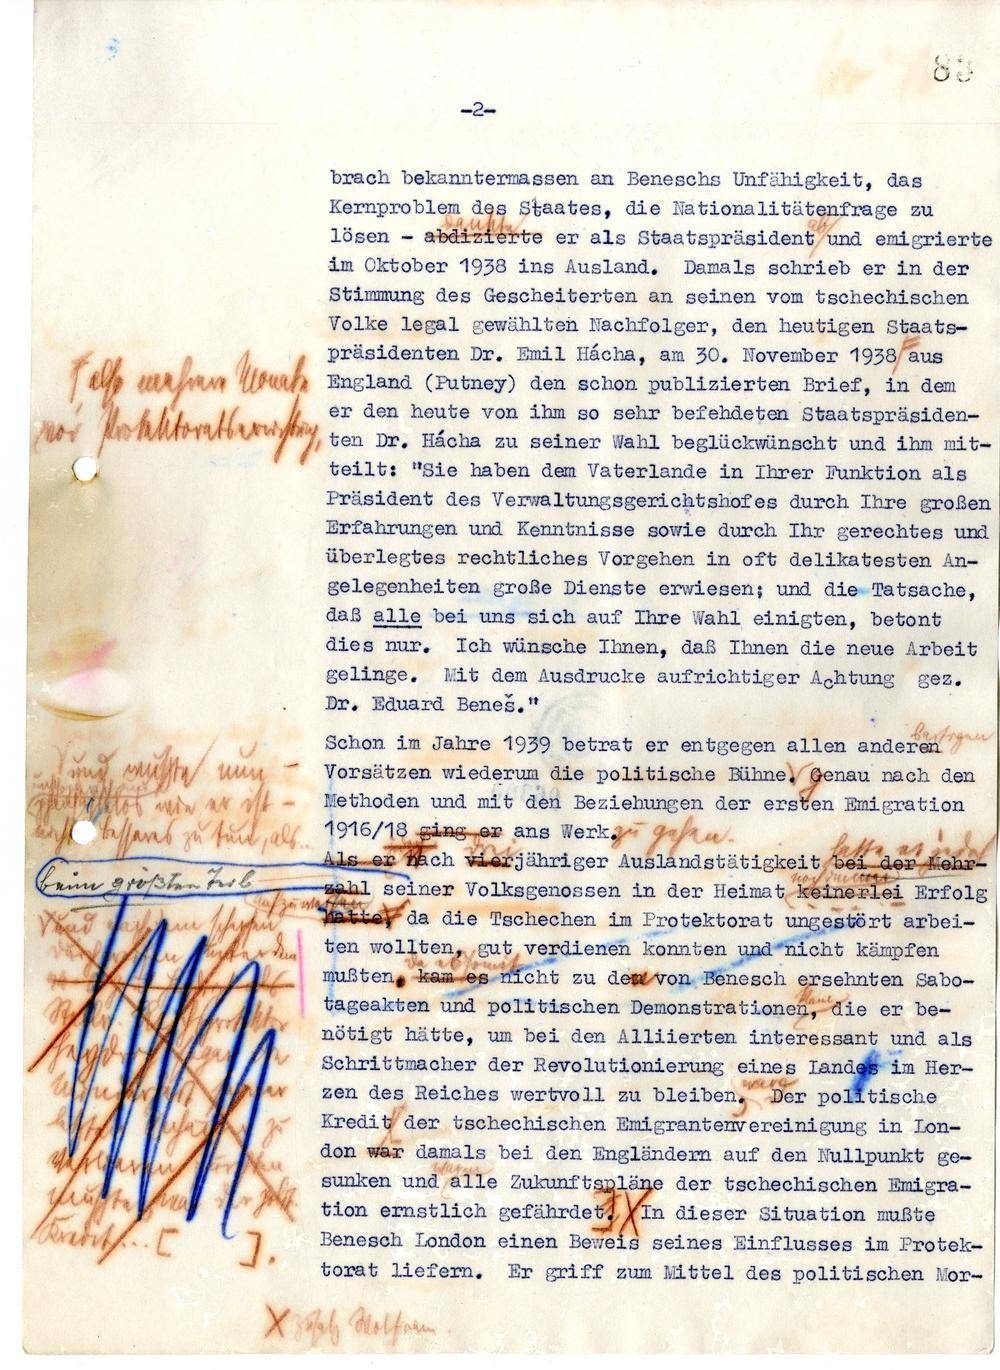 83
-2-
brach bekanntermassen an Beneschs Unfähigkeit, das
Kernproblem des Staates, die Nationalitätenfrage zu
dankte ab
lösen - abdizierte er als Staatspräsident und emigrierte
im Oktober 1938 ins Ausland. Damals schrieb er in der
Stimmung des Gescheiterten an seinen vom tschechischen
Volke legal gewählten Nachfolger, den heutigen Staats-
präsidenten Dr. Emil Hácha, am 30. November 1938 aus
also mehrere Monate
England (Putney) den schon publizierten Brief, in dem
er den heute von ihm so sehr befehdeten Staatspräsiden-
vor Protektoratserrichtung,
ten Dr. Hácha zu seiner Wahl beglückwünscht und ihm mit-
teilt: "Sie haben dem Vaterlande in Ihrer Funktion als
Präsident des Verwaltungsgerichtshofes durch Ihre großen
Erfahrungen und Kenntnisse sowie durch Ihr gerechtes und
überlegtes rechtliches Vorgehen in oft delikatesten An-
gelegenheiten große Dienste erwiesen; und die Tatsache,
daß alle bei uns sich auf Ihre Wahl einigten, betont
dies nur. Ich wünsche Ihnen, daß Ihnen die neue Arbeit
gelinge. Mit dem Ausdrucke aufrichtiger Achtung gez.
Dr. Eduard Beneš."
Schon im Jahre 1939 betrat er entgegen allen anderen
und wußte nun -
Vorsätzen wiederum die politische Bühne. Genau nach den
wie er ist -
Methoden und mit den Beziehungen der ersten Emigration
besseres zu tun, als
1916/18 ging er ans Werk. zu gehen.
Als er nach vierjähriger Auslandstätigkeit bei der Mehr-
beim größten Teil
zahl seiner Volksgenossen in der Heimat keinerlei Erfolg
hatte, da die Tschechen im Protektorat ungestört arbei-
ten wollten, gut verdienen konnten und nicht kämpfen
mußten, kam es nicht zu den von Benesch ersehnten Sabo-
tageakten und politischen Demonstrationen, die er be-
nötigt hätte, um bei den Alliierten interessant und als
Schrittmacher der Revolutionierung eines Landes im Her-
zen des Reiches wertvoll zu bleiben. Der politische
Kredit der tschechischen Emigrantenvereinigung in Lon-
don war damals bei den Engländern auf den Nullpunkt ge-
waren
sunken und alle Zukunftspläne der tschechischen Emigra-
tion ernstlich gefährdet. In dieser Situation mußte
Kredit... [ ].
Benesch London einen Beweis seines Einflusses im Protek-
torat liefern. Er griff zum Mittel des politischen Mor-
X Zusatz Wolfram.